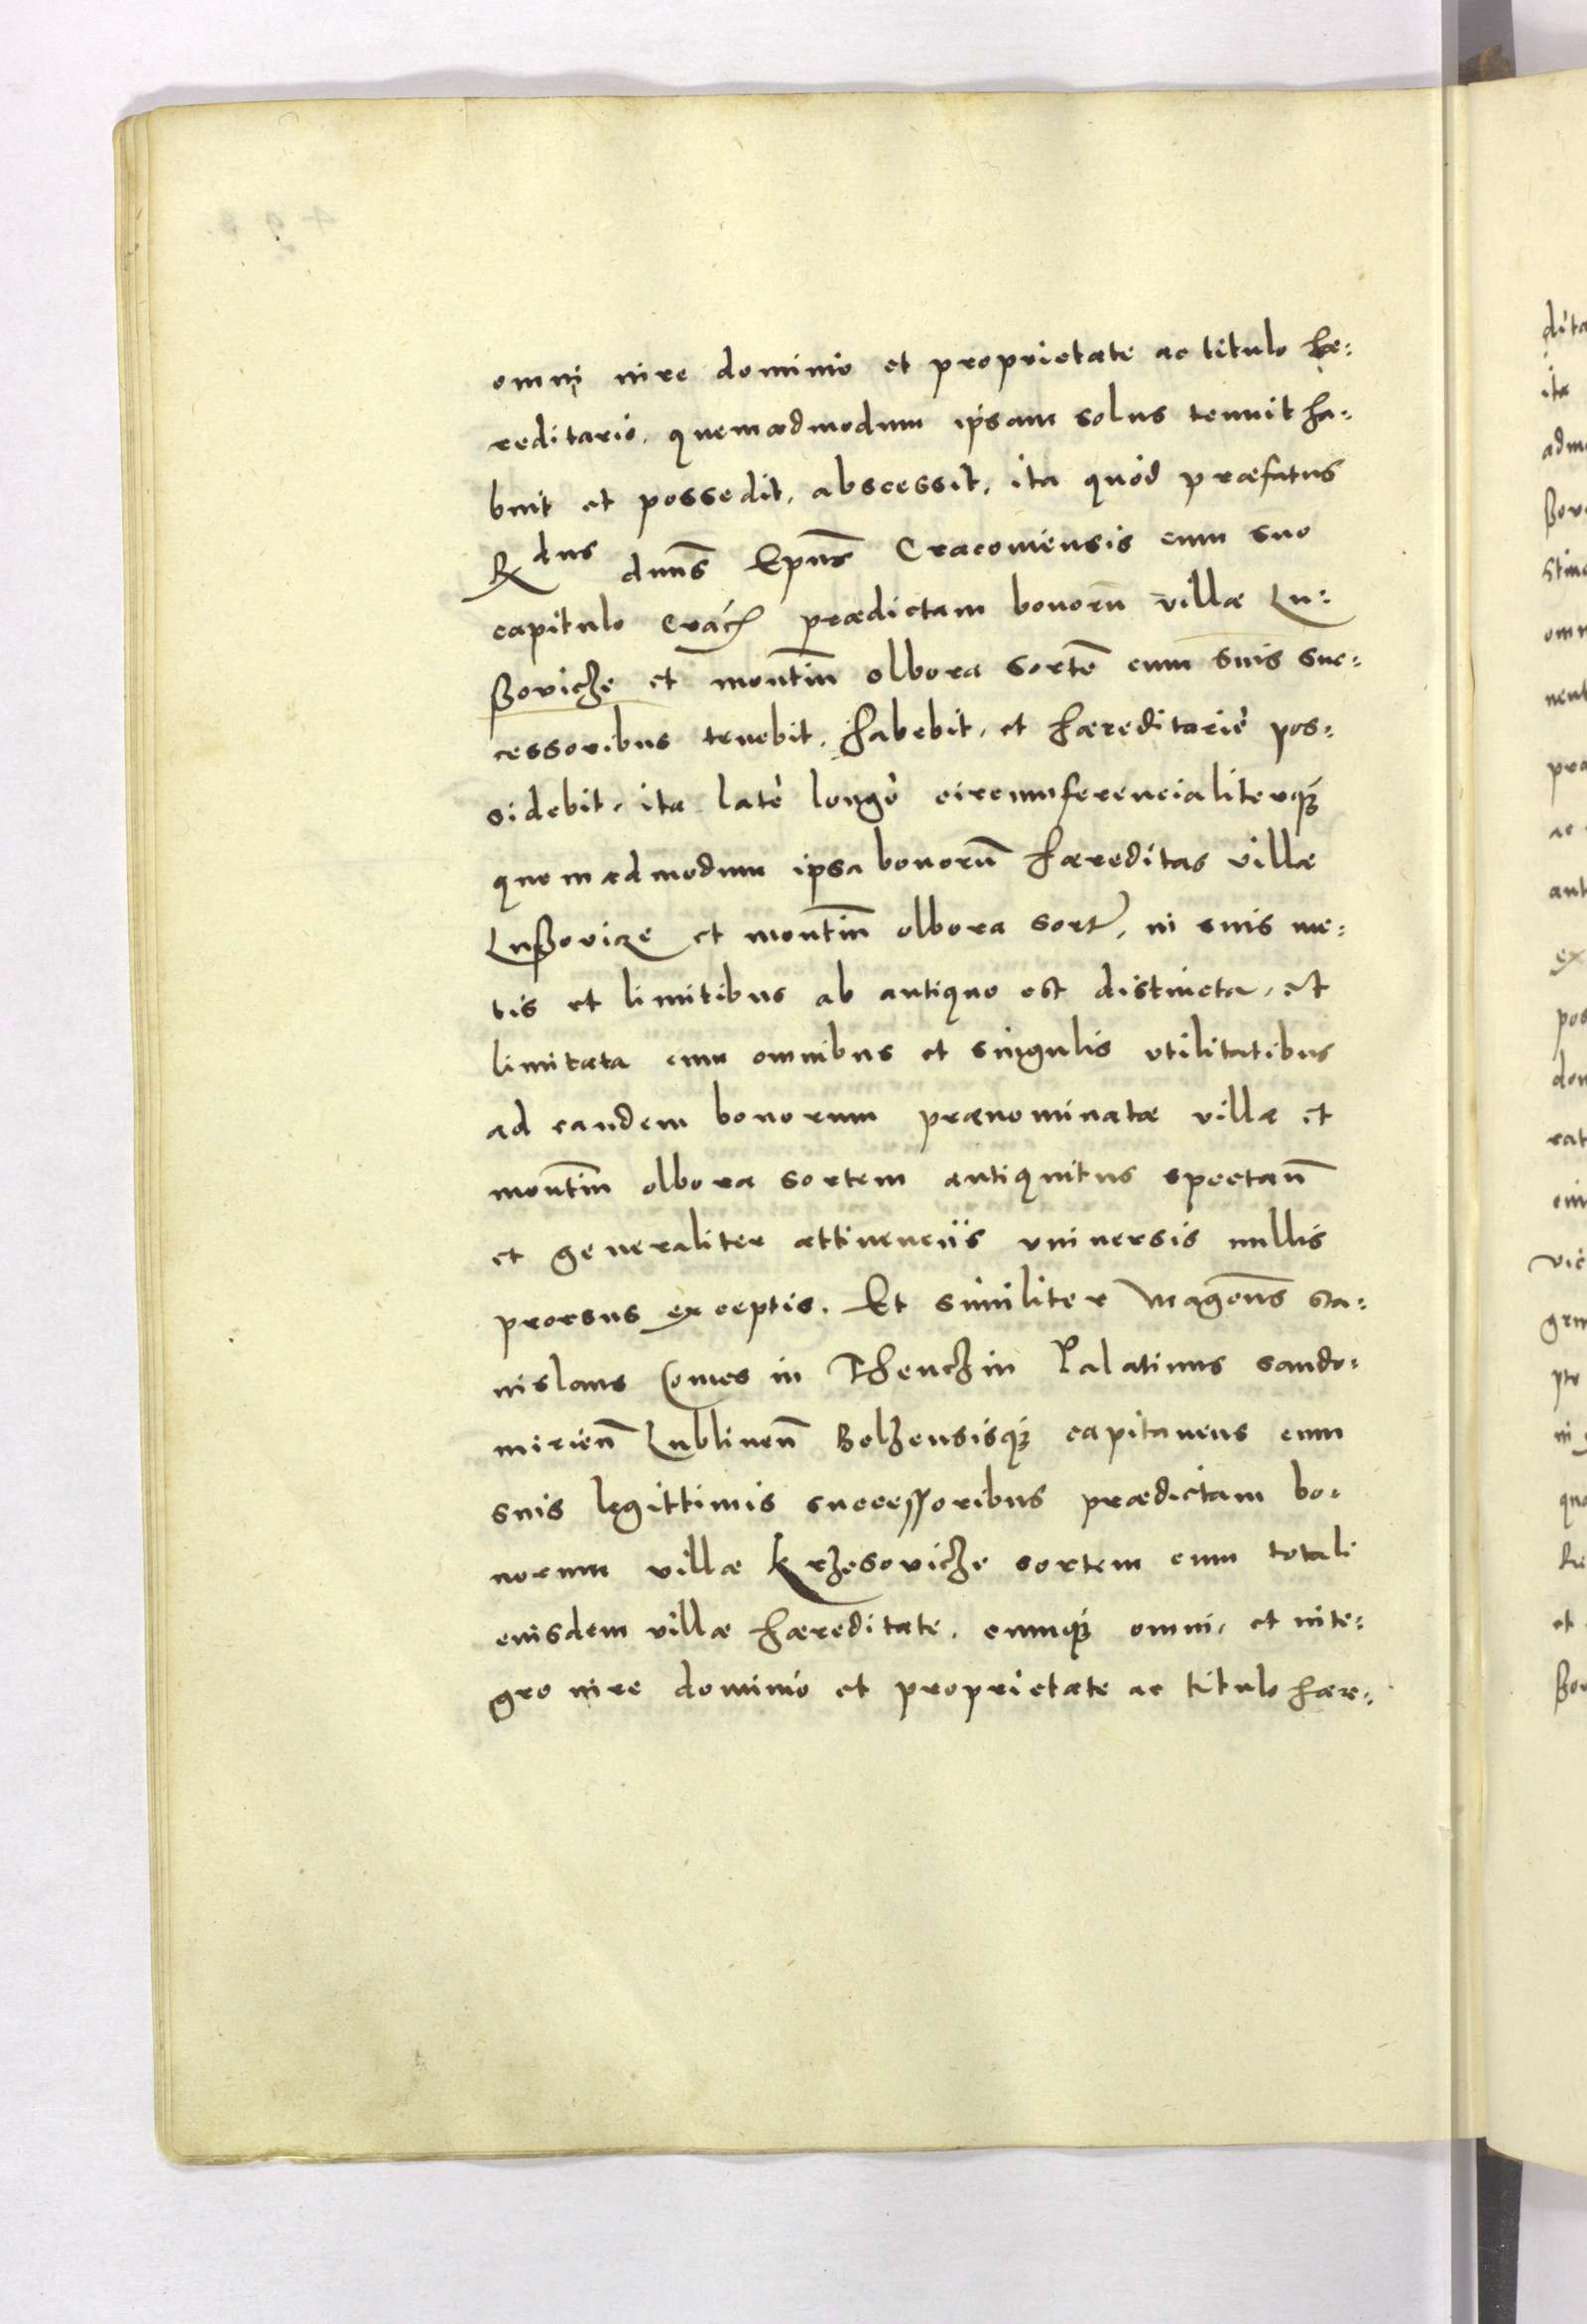 omni iure dominio et proprietate ac titulo hæ:
reditario, quemadmodum ipsam solus tenuit ha:
buit et possedit, abscessit, ita quòd præfatus
Rdus dnus Epus Cracoviensis cum suo
capitulo Crac prædictam bonorū villæ Lu:
ßoviche et montiū olbora sortē cum suis suc:
cessoribus tenebit, habebit, et hæreditariè pos:
sidebit, ita latè longè circumferencialiterq;
quemadmodum ipsa bonorū hæreditas villæ
Lußovicze et montiū olbora sors, in suis me:
tis et limitibus ab antiquo est distincta, et
limitata cum omnibus et singulis utilitatibus
ad eandem bonorum prænominatæ villæ et
montiū olbora sortem antiquitus spectan̄
et generaliter attinenciis universis nullis
prorsus exceptis. Et similiter Magcus Sta:
nislaus Comes in Thenchin Palatinus Sando:
mirien̄ Lublinen̄ Belzensisq; capitaneus cum
suis legittimis successoribus prædictam bo:
norum villæ Krzesoviche sortem cum totali
eiusdem villæ hæreditate, cumq; omni, et inte:
gro iure dominio et proprietate ac titulo hær: